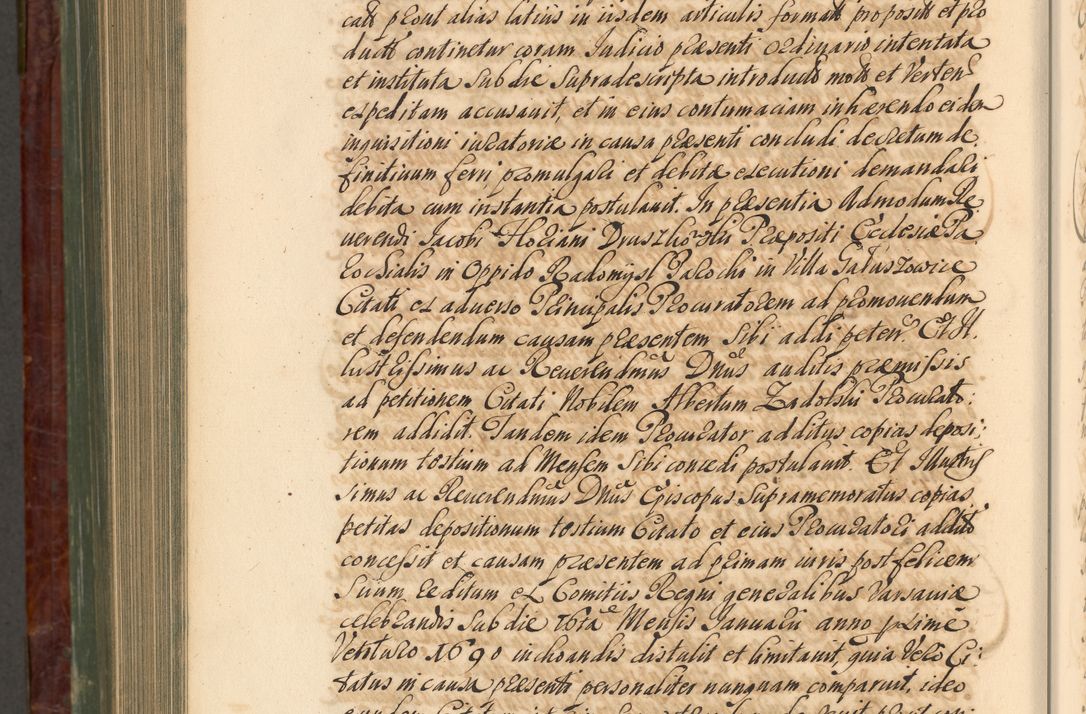 catt prout alias latius in iisdem articulis formatt propositt et pro
ductt continetur coram Judicio praesenti ordinario intentata
et instituta sub die supradescripta introductt mott et Verten
expeditam accusavit, et in eius contumaciam inhaerendo eidem
inquisitioni iuratoriae in causa praesenti concludi decretum de
finitivum ferri, promulgari et debitae executioni demandari
debita cum instantia postulavit. In praesentia Admodum Re
verendi Jacobi Floriani Druszkowskii Praepositi Ecclesiae Pa
rochialis in Oppido Radomysl Parochi in Villa Gałuszowice
Citati ex adverso Principalis Procuratorem ad promovendum
et defendendum causam praesentem sibi addi peten. Et Il
lustrissimus ac Reverendmus Dnus auditis praemissis
ad petitionem Citati Nobilem Albertum Zadolski Procurato:
rem addidit. Tandem idem Procurator additus copias deposi:
tionum testium ad Mensem sibi concedi postulavit. Et Illustris
simus ac Reverendmus Dnus Episcopus supramemoratus copias
petitas depositionum testium Citato et eius Procuratori addito
concessit et causam praesentem ad primam iuris post felicem
Suum reditum ex Comitiis Regni generalibus Varsaviae
celebrandis sub die 16ta Mensis Januarii anno proxime
Venturo 1690 inchoandis distulit et limitavit, quia vero Ci:
tatus in causa praesenti personaliter nunquam comparuit, ideo